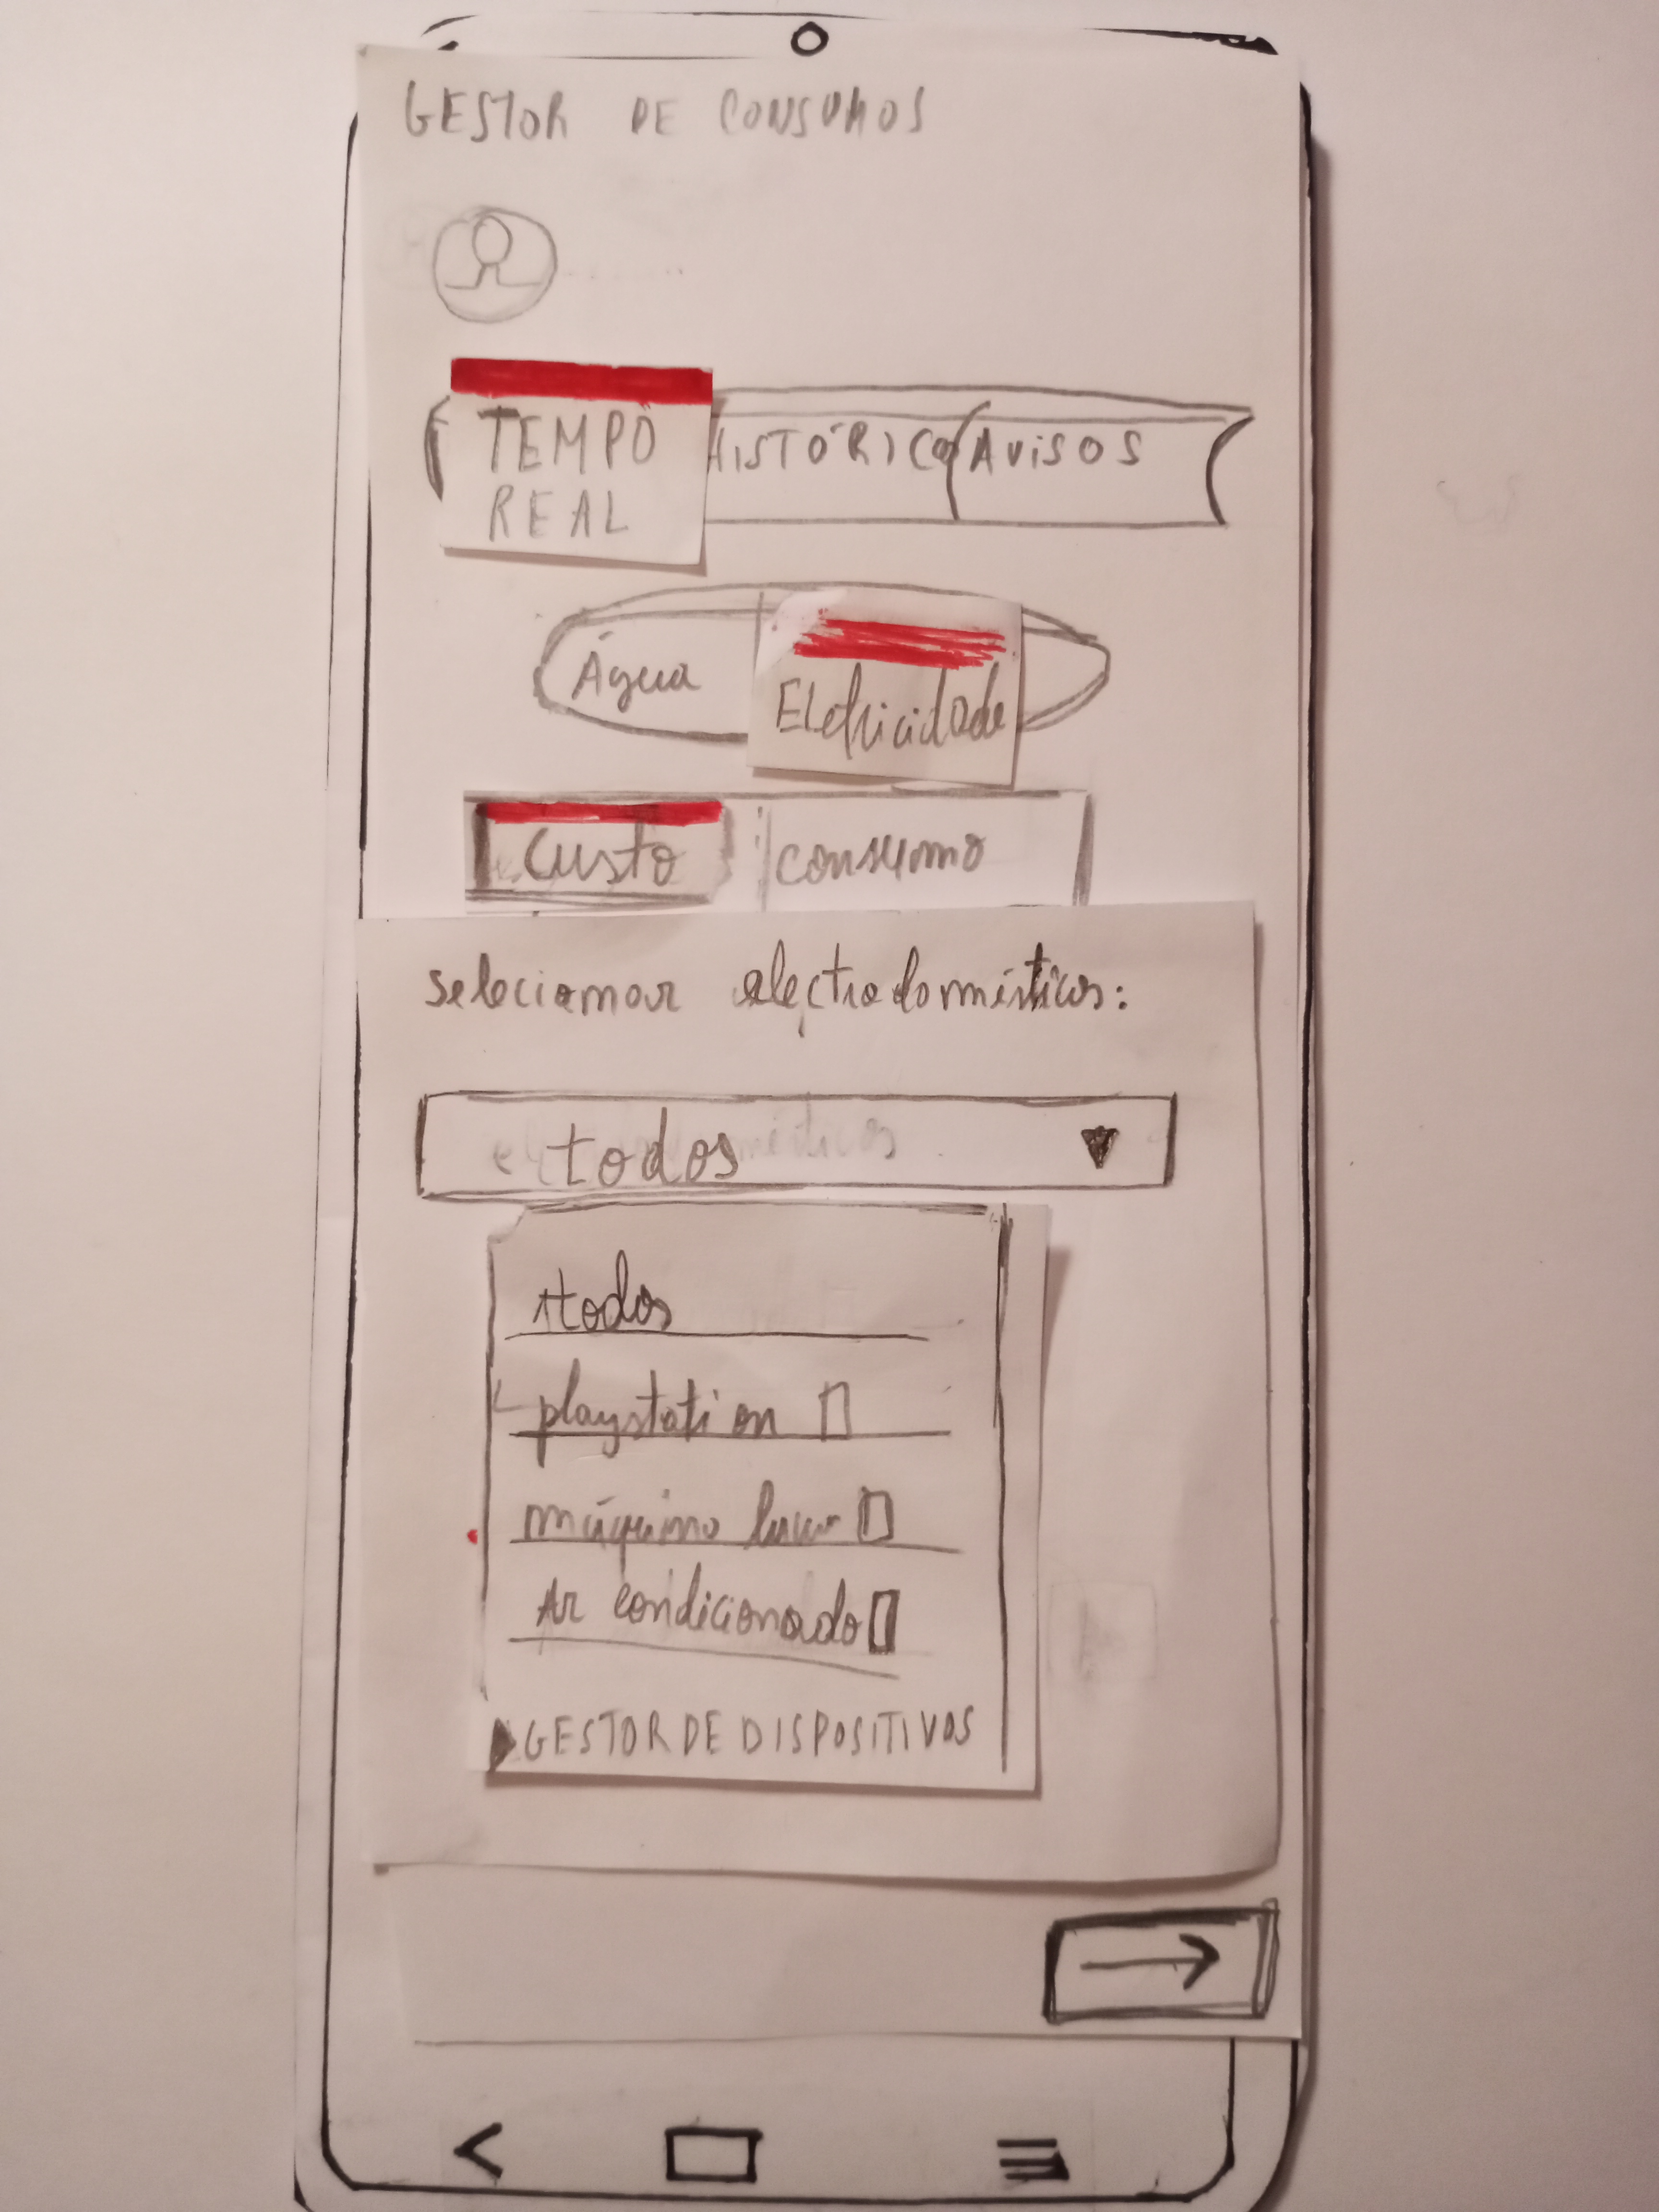 GESTOR DE CONSUMOS
TEMPO
REAL
HISTÓRICO
AVISOS
Água
Eletricidade
Custo
consumo
selecionar electrodomésticos:
todos
todos
playstation
máquina
Ar condicionado
GESTOR DE DISPOSITIVOS